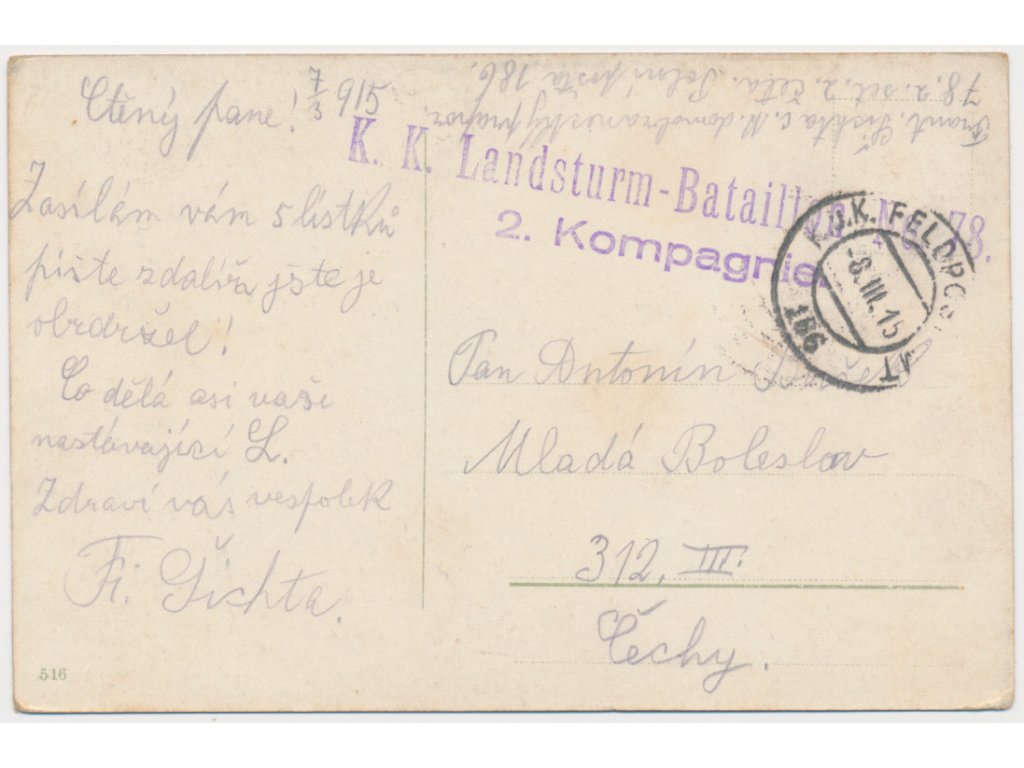 Ctěný pane! 7/3 915
Zasílám vám 5 lístků
pište zdaliž jste je
obrdržel!
Co dělá asi vaše
nastávající L.
Zdraví vás vespolek
Fr. Šichta.
516
Frant. Šichta c. k. domobranecký prapor.
78. 2. set. 2. četa. Polní pošta 186.
K. K. Landsturm-Bataillon No 78.
2. Kompagnie.
K.U.K. FELDPOSTAMT
-8.III.15
186
Pan Antonín
Mladá Boleslav
312, III.
Čechy.